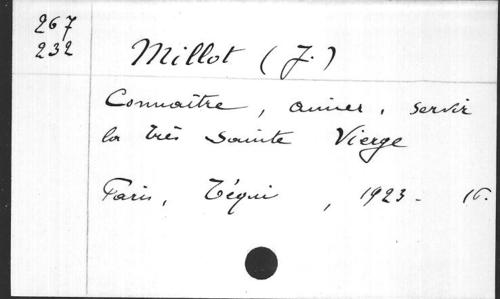 267
232
Millot (J.)
Connaître, aimer, servir
la très Sainte Vierge
Paris, Téqui, 1923 - 16.